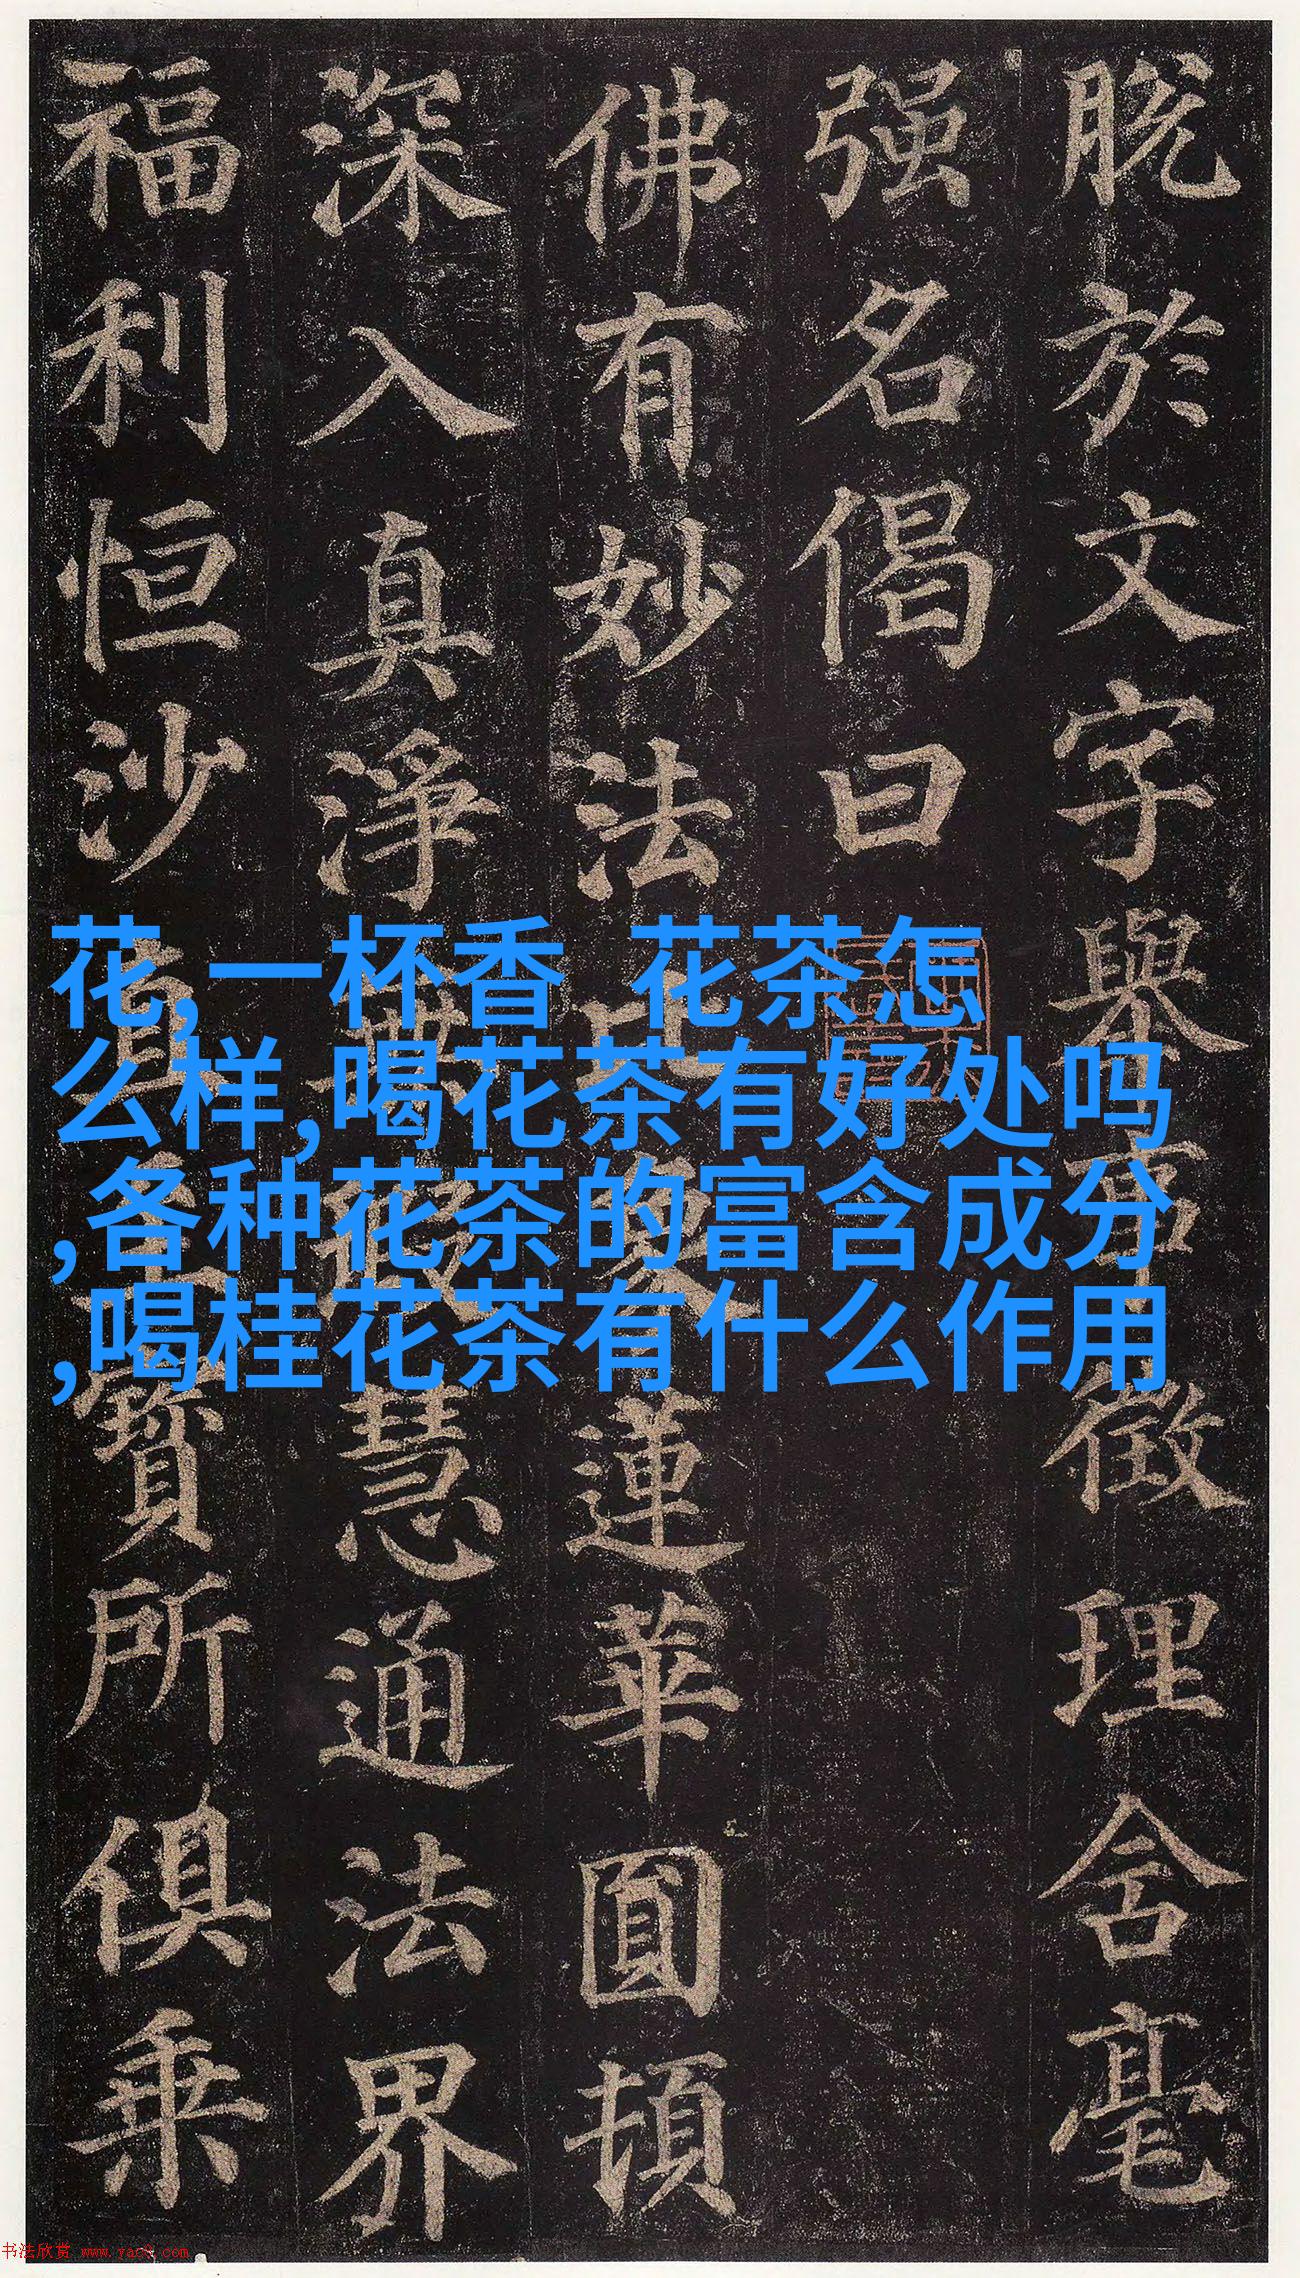 脱於文字舉事徵理含毫
强名偈曰
佛有妙法比象蓮華圓頓
深入真淨無瑕慧通法界
福利恒沙直至寶所俱乘
花,一杯香 花茶怎
么样,喝花茶有好处吗
,各种花茶的富含成分
,喝桂花茶有什么作用
书法欣赏 www.yac8.com